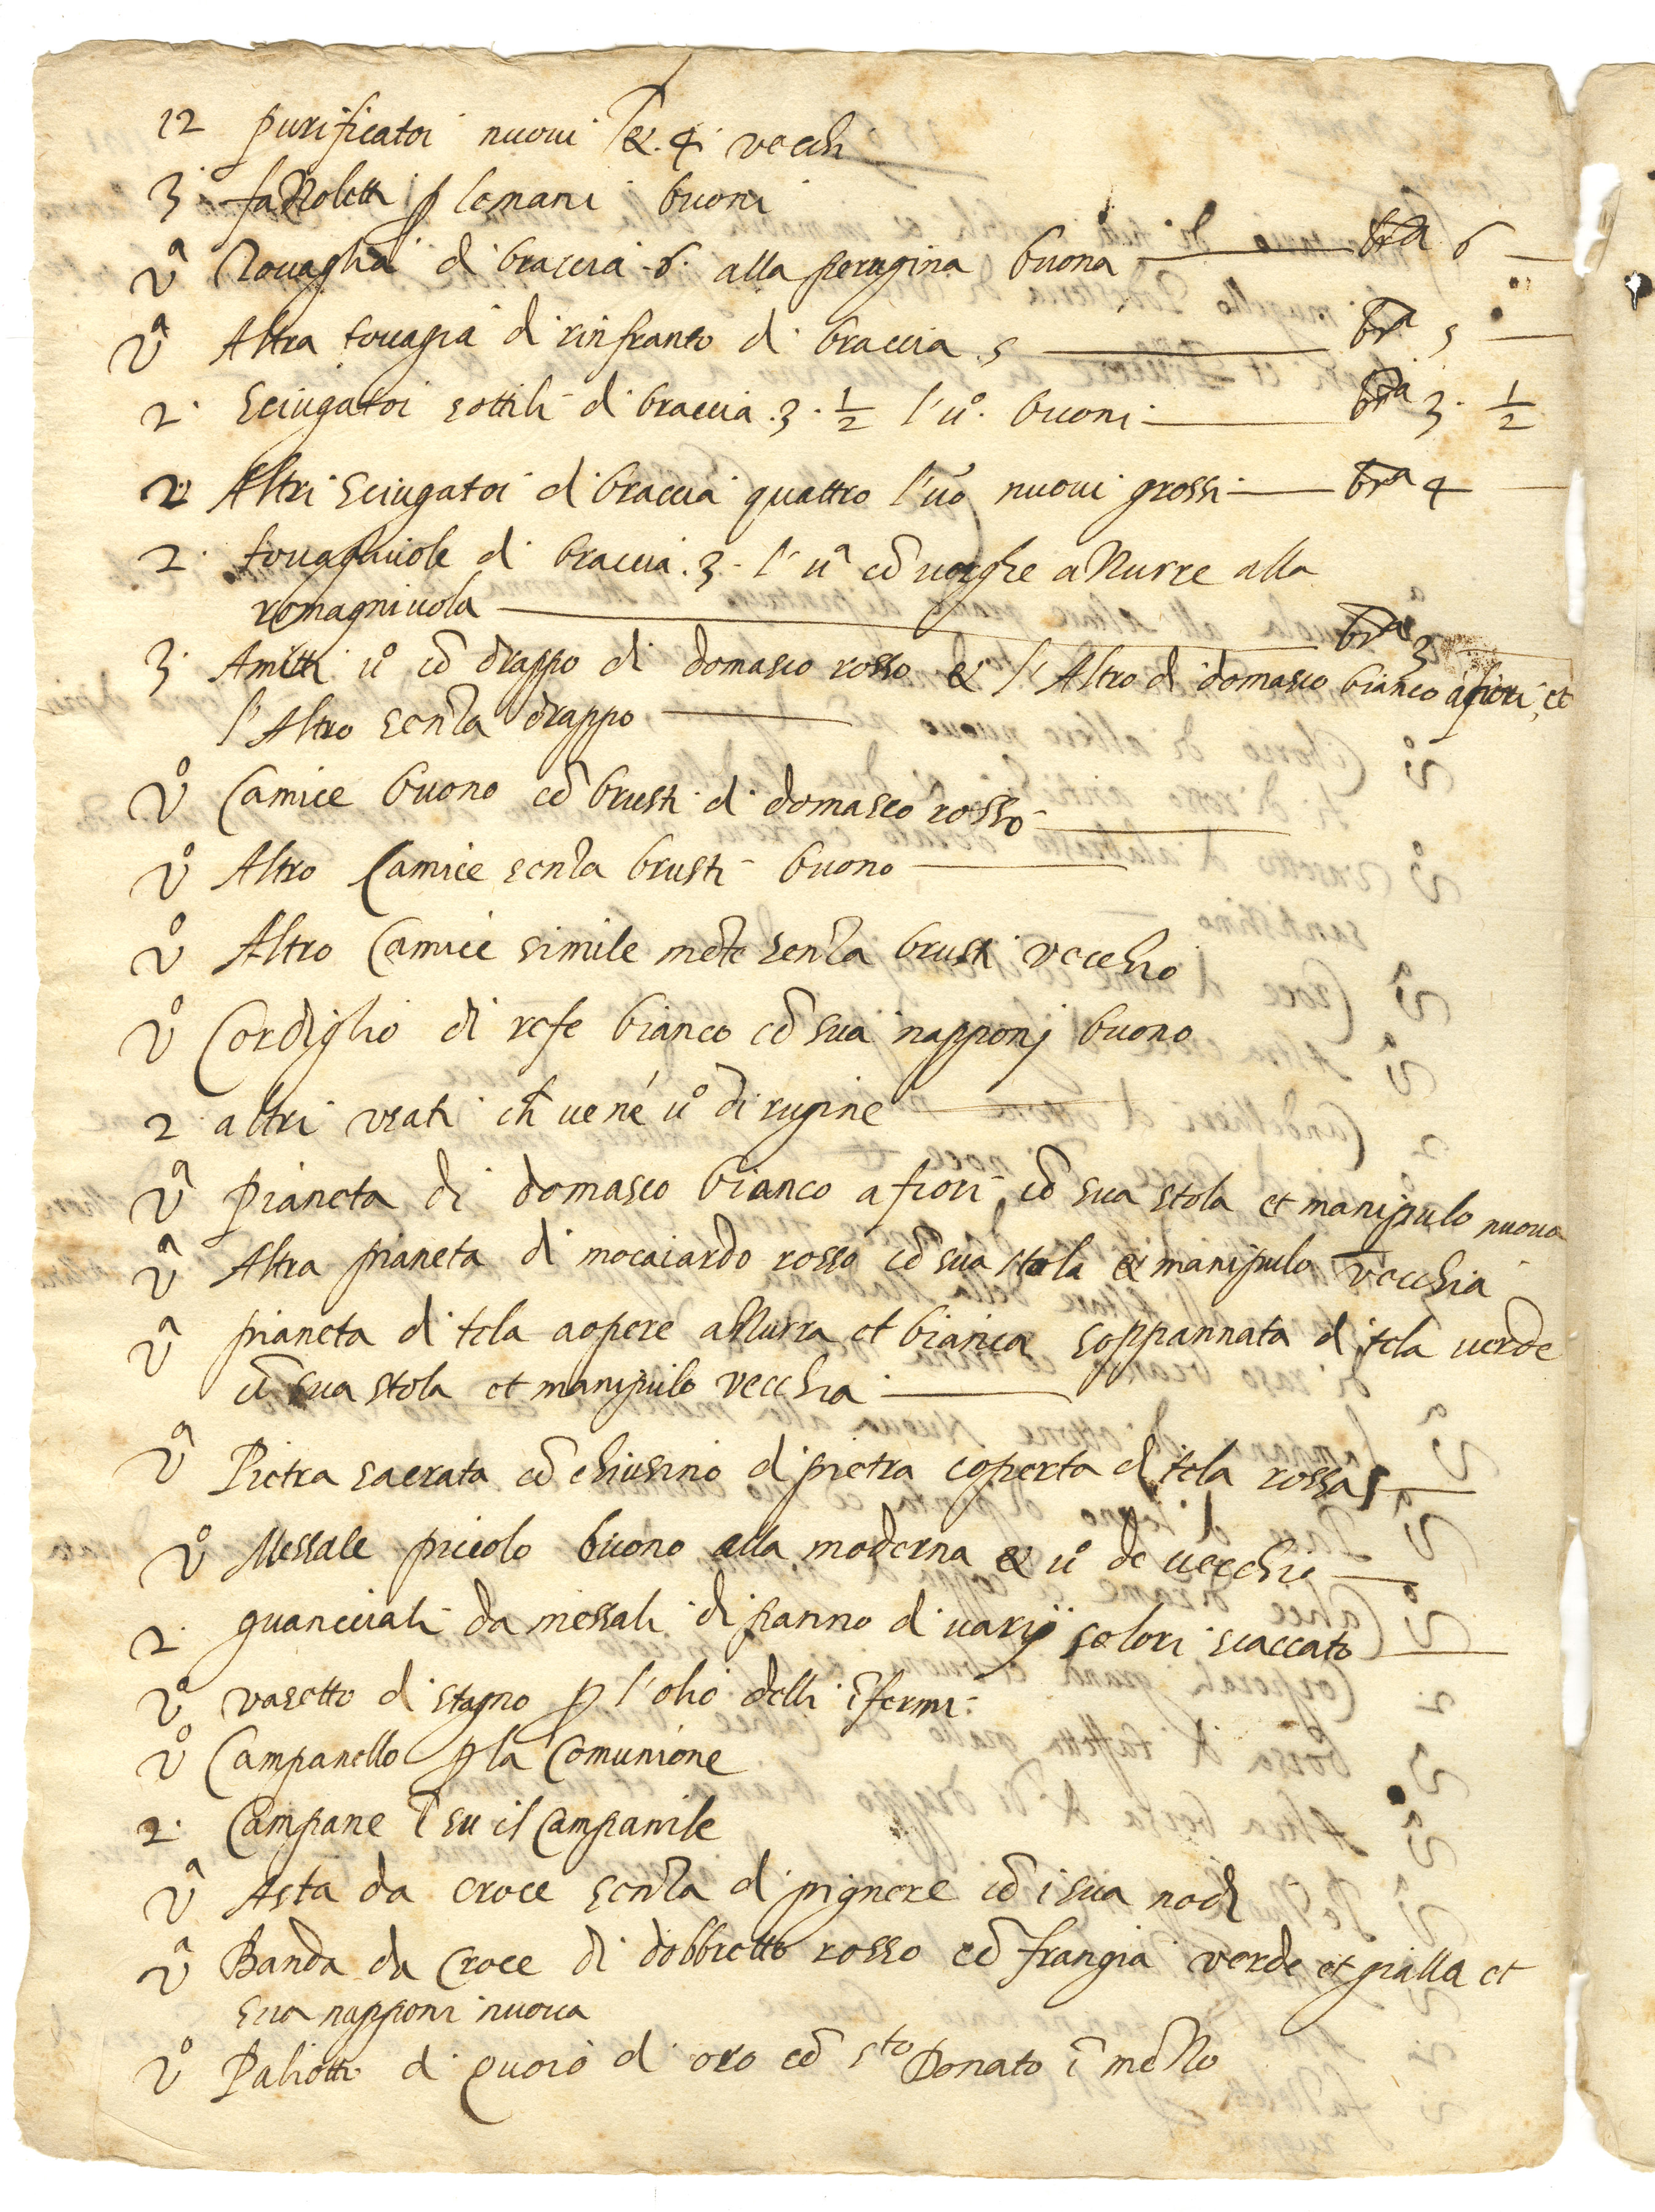 12 purificatoi nuoui & 4 vecchi
3 fazzoletti p lemani buoni
vª Touaglia di braccia 6. alla perugina buona braª 6
vª Altra touaglia di rinfranto di braccia 5 braª 5
2. Sciugatoi sottili di braccia .3. 1/2 l'uº. buoni braª 3. 1/2
2 Altri sciugatoi di braccia quattro l'uº nuoui grossi braª 4
2. touagliuole di braccia .3. l'uª cō uerghe azzurre alla
romagniuola braª 3
3. Amitti uº cō drappo di domasco rosso & l'Altro di domasco bianco a fiori, et
l'Altro senza drappo
vº Camice buono cō brusti di domasco rosso
vº Altro Camice senza brusti buono
vº Altro Camice simile mēte senza brusti vecchio
vº Cordiglio di refe bianco cō sua napponj buono
2 altri usati ch̄ ue né uº di rugine
vª pianeta di domasco bianco a fiori cō sua stola et manipulo nuoua
vª Altra pianeta di mocaiardo rosso cō sua stola & manipulo vecchia
vª pianeta di tela aopere azzurra et bianca soppannata di tela uerde
cō sua stola et manipulo vecchia
vª Pietra sacrata cō chiusino di pietra coperta di tela rossa
vº Messale piccolo buono alla moderna & uº de uecchi
2. guanciali da messali di panno di uarij colori scaccato
vº vasetto di stagno p l'olio delli īfermi
vº Campanello p la Comunione
2. Campane ī su il Campanile
vª Asta da croce senza dipignere cō i sua nodi
vª Banda da Croce di dobbretto rosso cō frangia verde et gialla et
sua napponi nuoua
vº Paliotto di quoio d'oro cō sto Donato ī mezzo